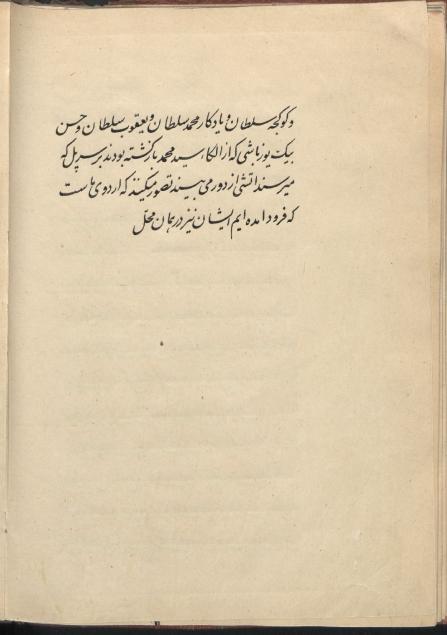 و کوکجه سلطان و یادکار محمد سلطان و یعقوب سلطان و حسن
بیک یوزباشی که از الکاء سید محمد بازکشته بودند بر سر پل که
میرسند اتشی از دور می بینند تصور میکنند که اردوی ماست
که فرود امده ایم ایشان نیز در همان محل